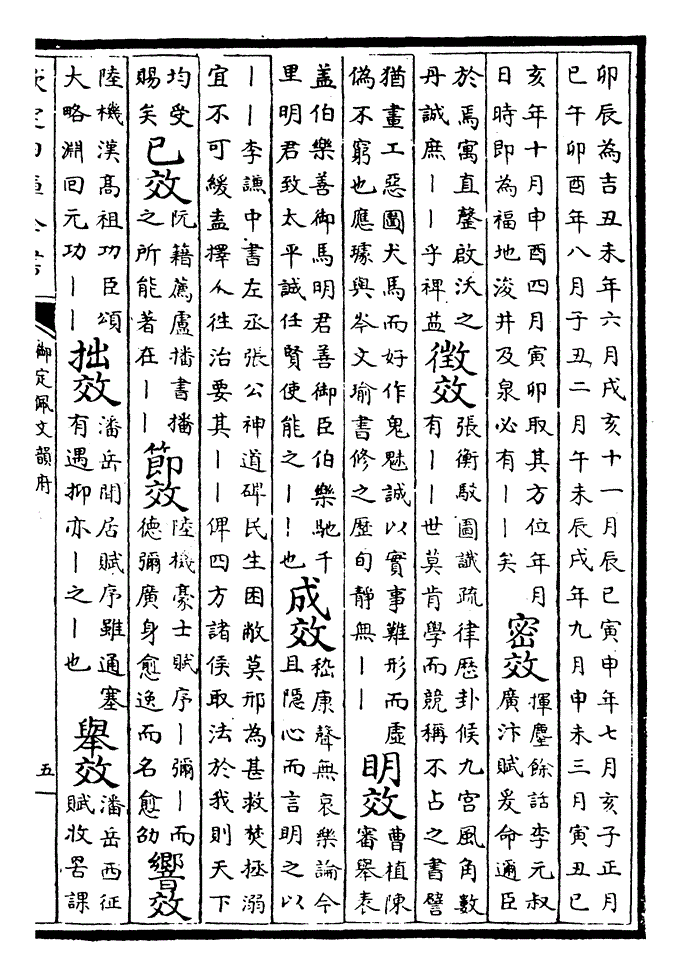 卯辰為吉丑未年六月戌亥十一月辰巳寅申年七月亥子正月
巳午卯酉年八月子丑二月午未辰戌年九月申未三月寅丑巳
亥年十月申酉四月寅卯取其方位年月
日時即為福地浚井及泉必有丨丨矣
密效
揮麈餘話李元叔
廣汴賦爰命邇臣
於焉寓直罄啟沃之
丹誠庶丨丨乎裨益
徵效
張衡駁圖讖疏律歴卦候九宮風角數
有丨丨世莫肯學而競稱不占之書譬
猶畫工惡圖犬馬而好作鬼魅誠以實事難形而虛
偽不窮也應璩與岑文瑜書修之歴旬静無丨丨
明效
曹植陳
審舉表
盖伯樂善御馬明君善御臣伯樂馳千
里明君致太平誠任賢使能之丨丨也
成效
嵇康聲無哀樂論今
且隱心而言明之以
丨丨李謙中書左丞張公神道碑民生困敝莫邢為甚救焚拯溺
宜不可緩盍擇人徃治要其丨丨俾四方諸侯取法於我則天下
均受
賜矣
已效
阮籍薦盧播書播
之所能著在丨丨
節效
陸機豪士賦序丨彌丨而
德彌廣身愈逸而名愈劭
響效
陸機漢髙祖功臣頌
大略淵回元功丨丨
拙效
潘岳閒居賦序雖通塞
有遇抑亦丨之丨也
舉效
潘岳西征
賦牧罟課
欽定四庫全書
御定佩文韻府
五